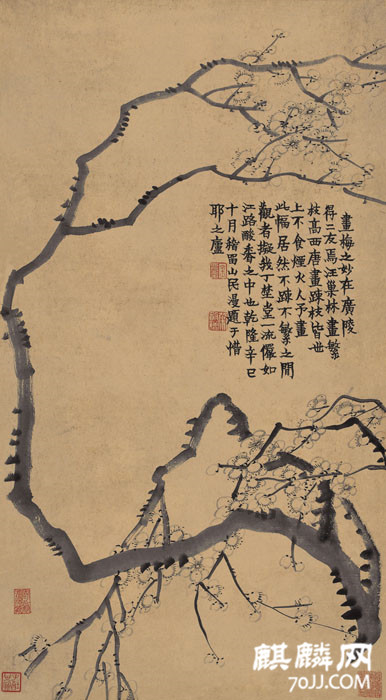 畫梅之妙在廣陵
得二友焉汪巢林畫繁
枝高西唐畫疎枝皆世
上不食煙火人予畫
此幅居然不疎不繁之間
觀者擬我丁埜堂一流儼如
江路酸香之中也乾隆辛巳
十月稽留山民漫題于惜
耶之廬
麒麟网
70JJ.COM